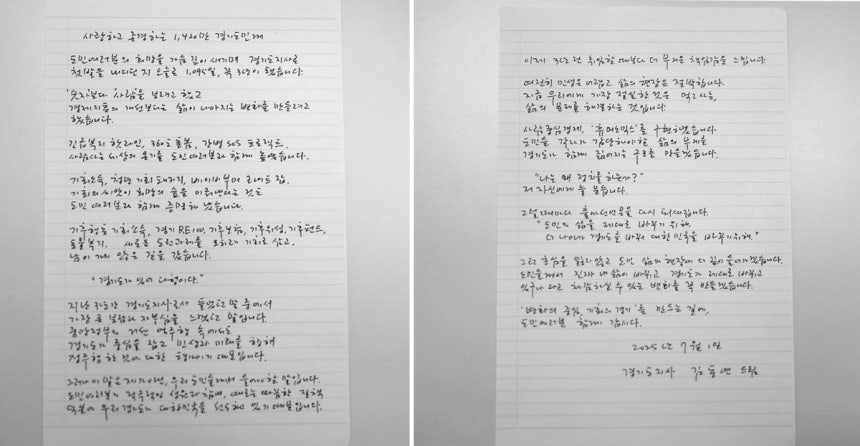 사랑하고 존경하는 1,420만 경기도민께
도민여러분의 희망을 가슴 깊이 새기며 경기도지사로
첫발을 내디딘 지 오늘로 1,095일, 꼭 3년이 됐습니다.
'숫자'보다 '사람'을 보려고 했고
경제지표의 개선보다는 삶이 나아지는 변화를 만들려고
했습니다.
긴급복지 핫라인, 360도 돌봄, 간병 SOS 프로젝트.
사람사는 세상의 온기를 도민여러분과 함께 높였습니다.
기회소득, 청년 기회 패키지, 베이비부머 라이트 잡.
기회의 씨앗이 희망의 숲을 이뤄낸다는 것도
도민 여러분과 함께 증명해 냈습니다.
기후행동 기회소득, 경기 RE100, 기후보험, 기후위성, 기후펀드,
동물복지. 새로운 도전과제를 오히려 기회로 삼고,
남이 가지 않은 길을 갔습니다.
"경기도가 있어 다행이다."
지난 3년간 경기도지사로서 들었던 말 중에서
가장 큰 보람과 자부심을 느꼈던 말입니다.
중앙정부의 거센 역주행 속에서도
경기도가 중심을 잡고 민생과 미래를 향해
정주행 한 것에 대한 평가이기 때문입니다.
그러나 이 말은 제가 아닌, 우리 도민들께서 들어야 할 말입니다.
도민여러분의 적극적인 성원과 참여, 때로는 따끔한 질책
덕분에 우리 경기도가 대한민국을 선도하고 있기 때문입니다.
이제 3년 전 취임할 때보다 더 무거운 책임감을 느낍니다.
여전히 민생은 어렵고 삶의 현장은 절박합니다.
지금 우리에게 가장 절실한 것은 먹고사는,
삶의 문제를 해결하는 것입니다.
사람중심경제, '휴머노믹스'를 구현하겠습니다.
도민들 각자가 감당해야할 삶의 무게를
경기도가 함께 짊어지는 구조를 만들겠습니다.
"나는 왜 정치를 하는가?"
저 자신에게 늘 묻습니다.
그럴 때마다 출마선언문을 다시 되새깁니다.
"도민의 삶을 제대로 바꾸기 위해.
더 나아가 경기도를 바꿔 대한민국을 바꾸기 위해."
그 초심을 잃지 않고 도민 삶의 현장에 더 깊이 들어가겠습니다.
도민들께서 진짜 내 삶이 바뀌고, 경기도가 제대로 바뀌고
있구나 라고 체감하실 수 있는 변화를 꼭 만들겠습니다.
'변화의 중심, 기회의 경기'를 만드는 길에,
도민여러분 함께 갑시다.
2025년 7월 1일
경기도지사 김동연 드림